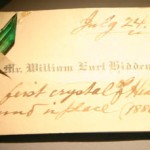 July 24.
Mr. William Earl Hidden
first crystal of
found in place (188